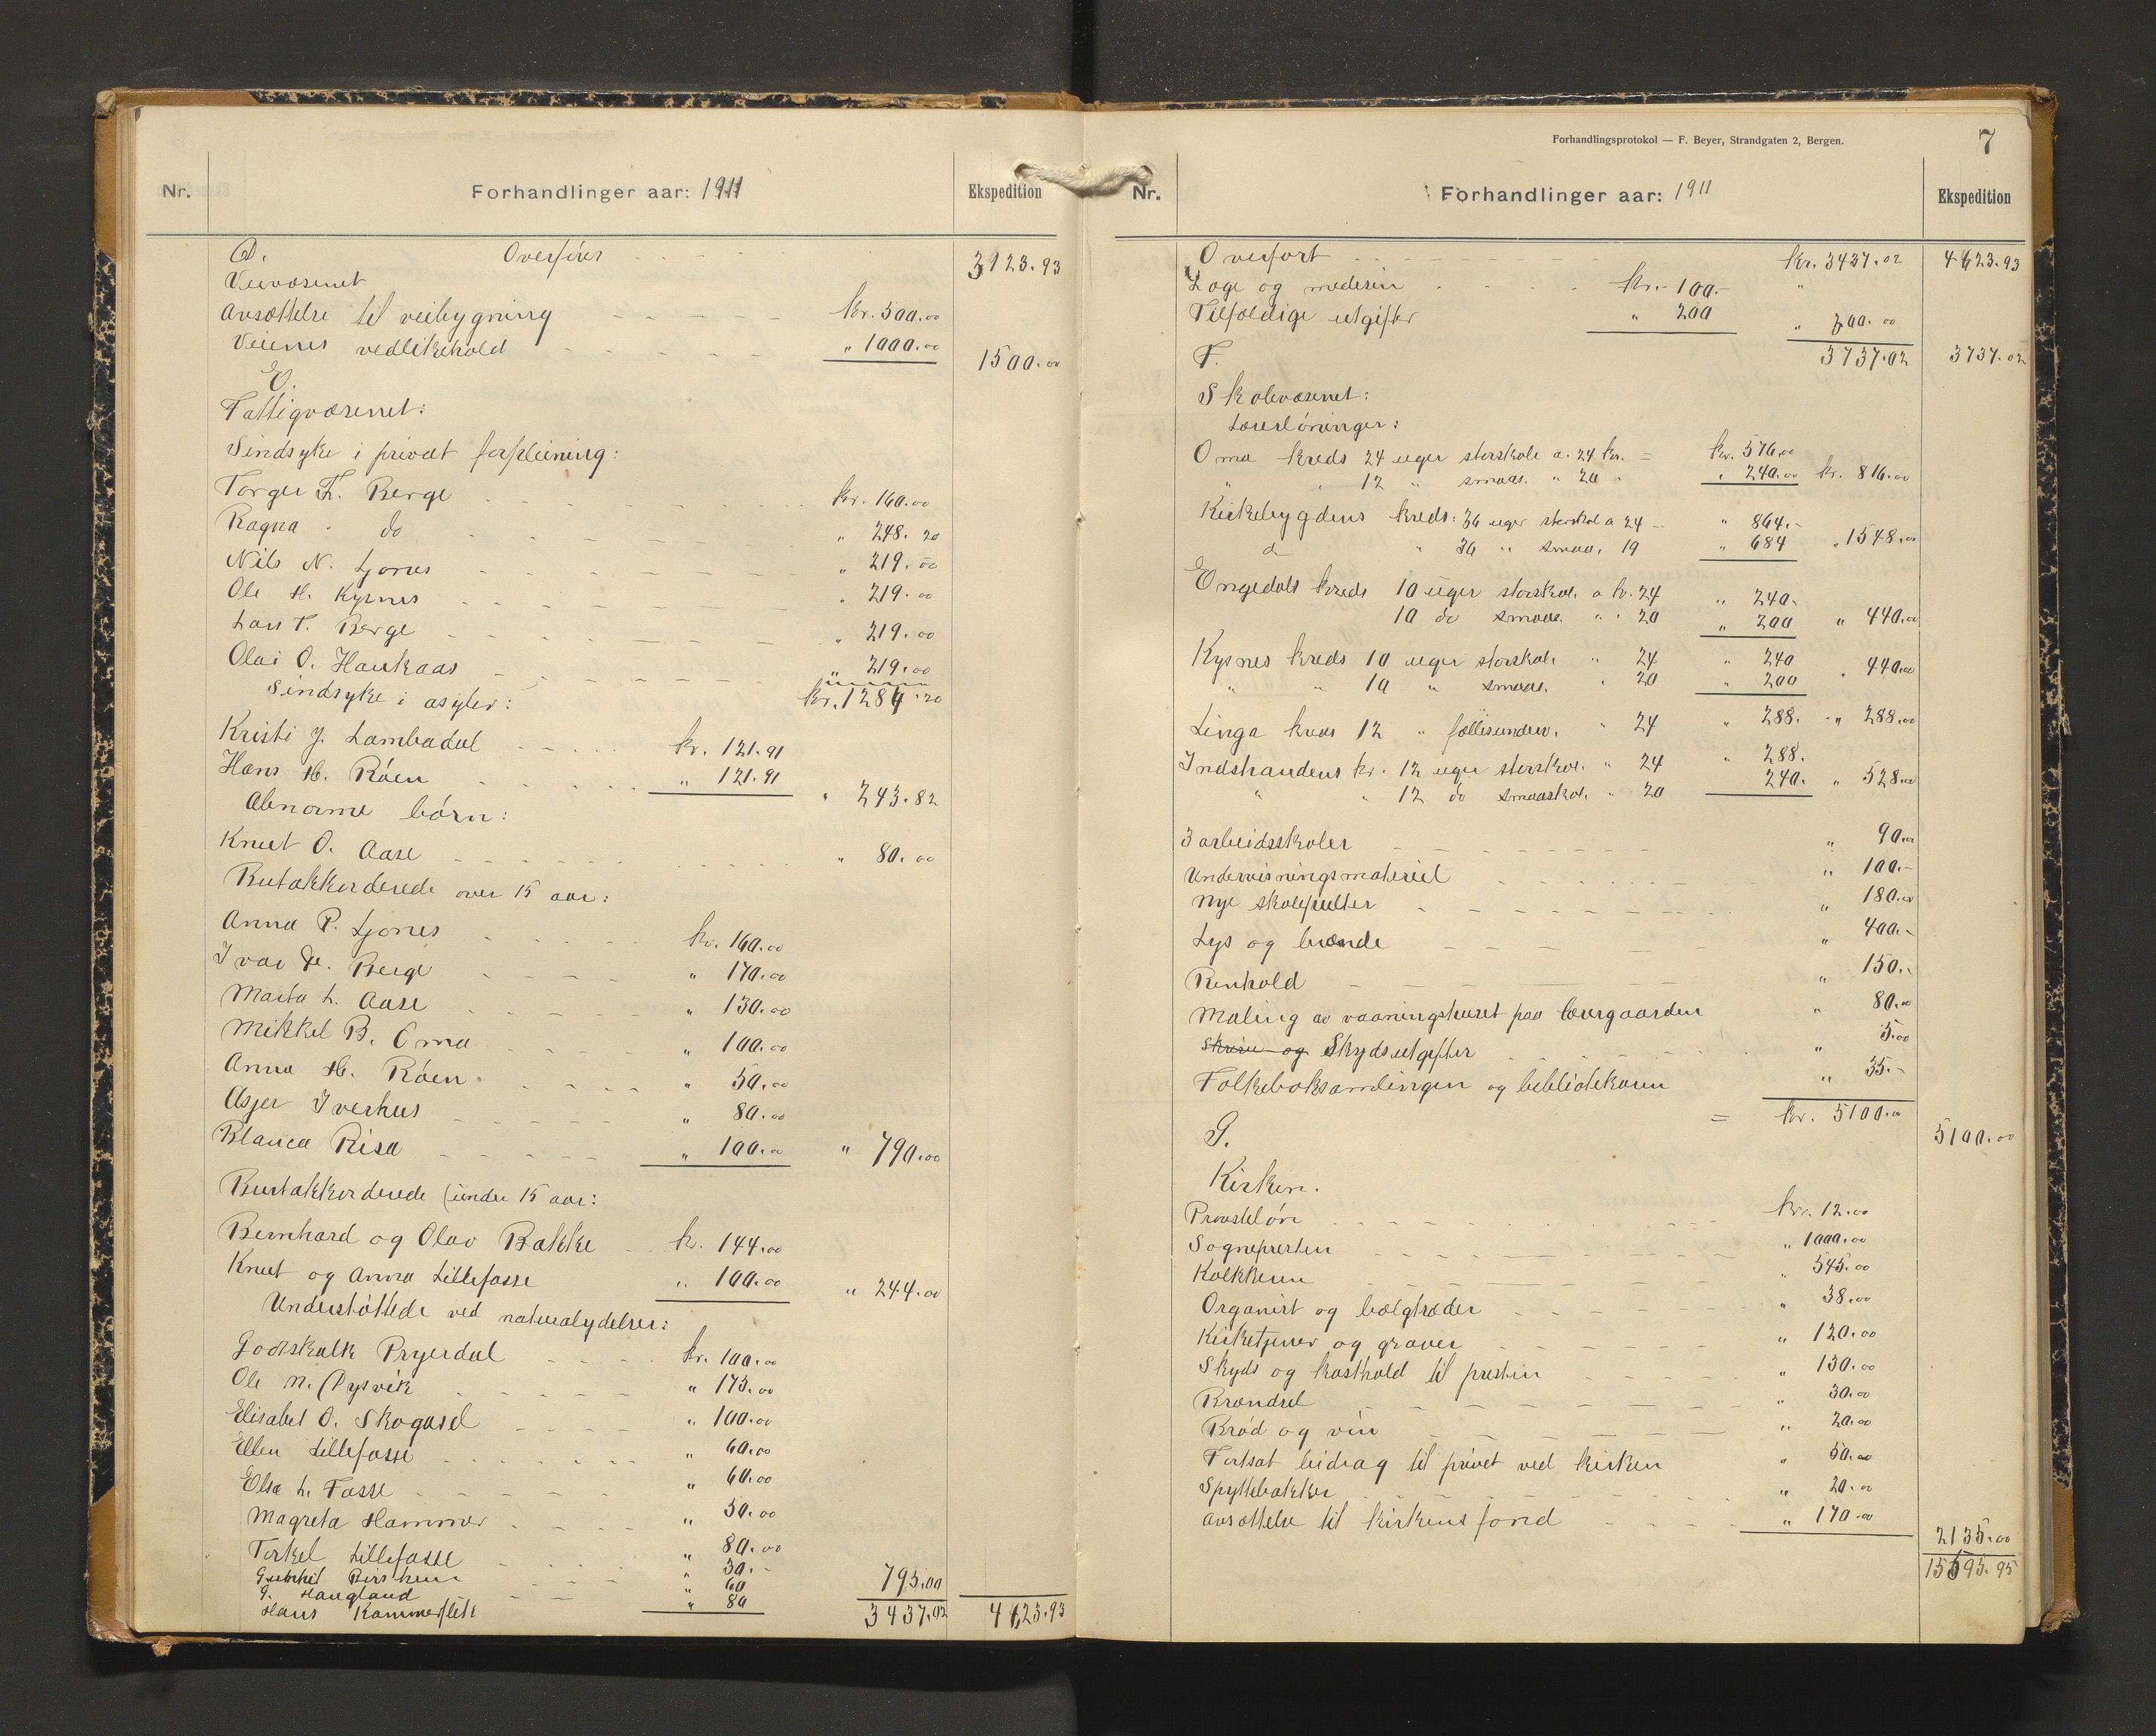 Nr.
Forhandlinger aar: 1911
Ekspedition
D. Overføres 3123.93
Veivæsenet
Avsættelse til veibygning kr. 500.00
Veienes vedlikehold " 1000.00 1500.00
E.
Fattigvæsenet:
Sindsyke i privat forpleining:
Torger T. Berge kr. 160.00
Ragna " do " 248.20
Nils N. Ljones " 219.00
Ole H. Kysnes " 219.00
Lars T. Berge " 219.00
Olai O. Haukaas " 219.00
Sindsyke i asyler: kr. 1284.20
Kristi J. Lambadal kr. 121.91
Hans H. Røen " 121.91 " 243.82
Abnorme børn:
Knut O. Aase " 80.00
Butakkorderede over 15 aar:
Anna P. Ljones kr. 160.00
Ivar H. Berge " 170.00
Marta L. Aase " 130.00
Mikkel B. Oma " 100.00
Anna H. Røen " 50.00
Asjer Iverhus " 80.00
Blanca Risa " 100.00 " 790.00
Bortakkorderede under 15 aar:
Bernhard og Olav Bakke kr. 144.00
Knut og Anna Lillefosse " 100.00 " 244.00
Understøttede ved naturalydelser:
Godskalk Pryerdal kr. 100.00
Ole N. Pysvik " 175.00
Elisabet O. Skogasel " 100.00
Ellen Lillefosse " 60.00
Elsa L. Fosse " 60.00
Magreta Hammer " 50.00
Torkel Lillefosse " 80.00
" 30.-
G. Haugland " 60 795.00
Hans " 80 3437.02 4623.93
Forhandlingsprotokol — F. Beyer, Strandgaten 2, Bergen.
7
Nr.
Forhandlinger aar: 1911
Ekspedition
Overført kr. 3437.02 4623.93
Læge og medesin kr. 100.- "
Tilfældige utgifter " 200 " 300.00
F. 3737.02 3737.02
Skolevæsenet:
Lærerlønninger:
Oma kreds 24 uger storskole a. 24 kr. = kr. 576.00
" " 12 " smaas. " 20 " " 240.00 kr. 816.00
Kirkebygdens kreds: 36 uger storskol a 24 " 864.-
d " 36 " smaa. 19 " 684 " 1548.00
Engedals kreds 10 uger storskol. a kr. 24 " 240.
10 do smaas. " " 20 " 200 " 440.00
Kysnes kreds 10 uger storskol. " 24 " 240
" " 10 " smaas. " 20 " 200 " 440.00
Linga kreds 12 " fællesunderv. " 24 " 288. " 288.00
Indstrandens kr. 12 uger storskol. " 24 " 288.
" " 12 do smaaskol. " 20 240. " 528.00
3 arbeidsskoler " 90.00
Undervisningsmateriel " 100.-
Nye skolepulter " 180.00
Lys og brænde " 400.-
Renhold " 150.-
Maling av vaaningshuset paa lærergaarden " 80.00
Skrive og Skydsutgifter " 5.00
Folkeboksamlingen og bibliotekaren " 35.-
= kr. 5100.00 5100.00
G.
Kirken.
Prosteløn kr. 12.00
Sognepresten " 1000.00
Kolkkeren " 545.00
Organist og bælgtræder " 38.00
Kirketjener og graver " 120.00
Skyds og kosthold til presten " 130.00
Brændsel " 30.00
Brød og vin " 20.00
Fortsat bidrag til privet ved kirken " 50.00
Spyttebakker " 20.00
Avsættelse til kirkens fond " 170.00
2135.00
15595.95